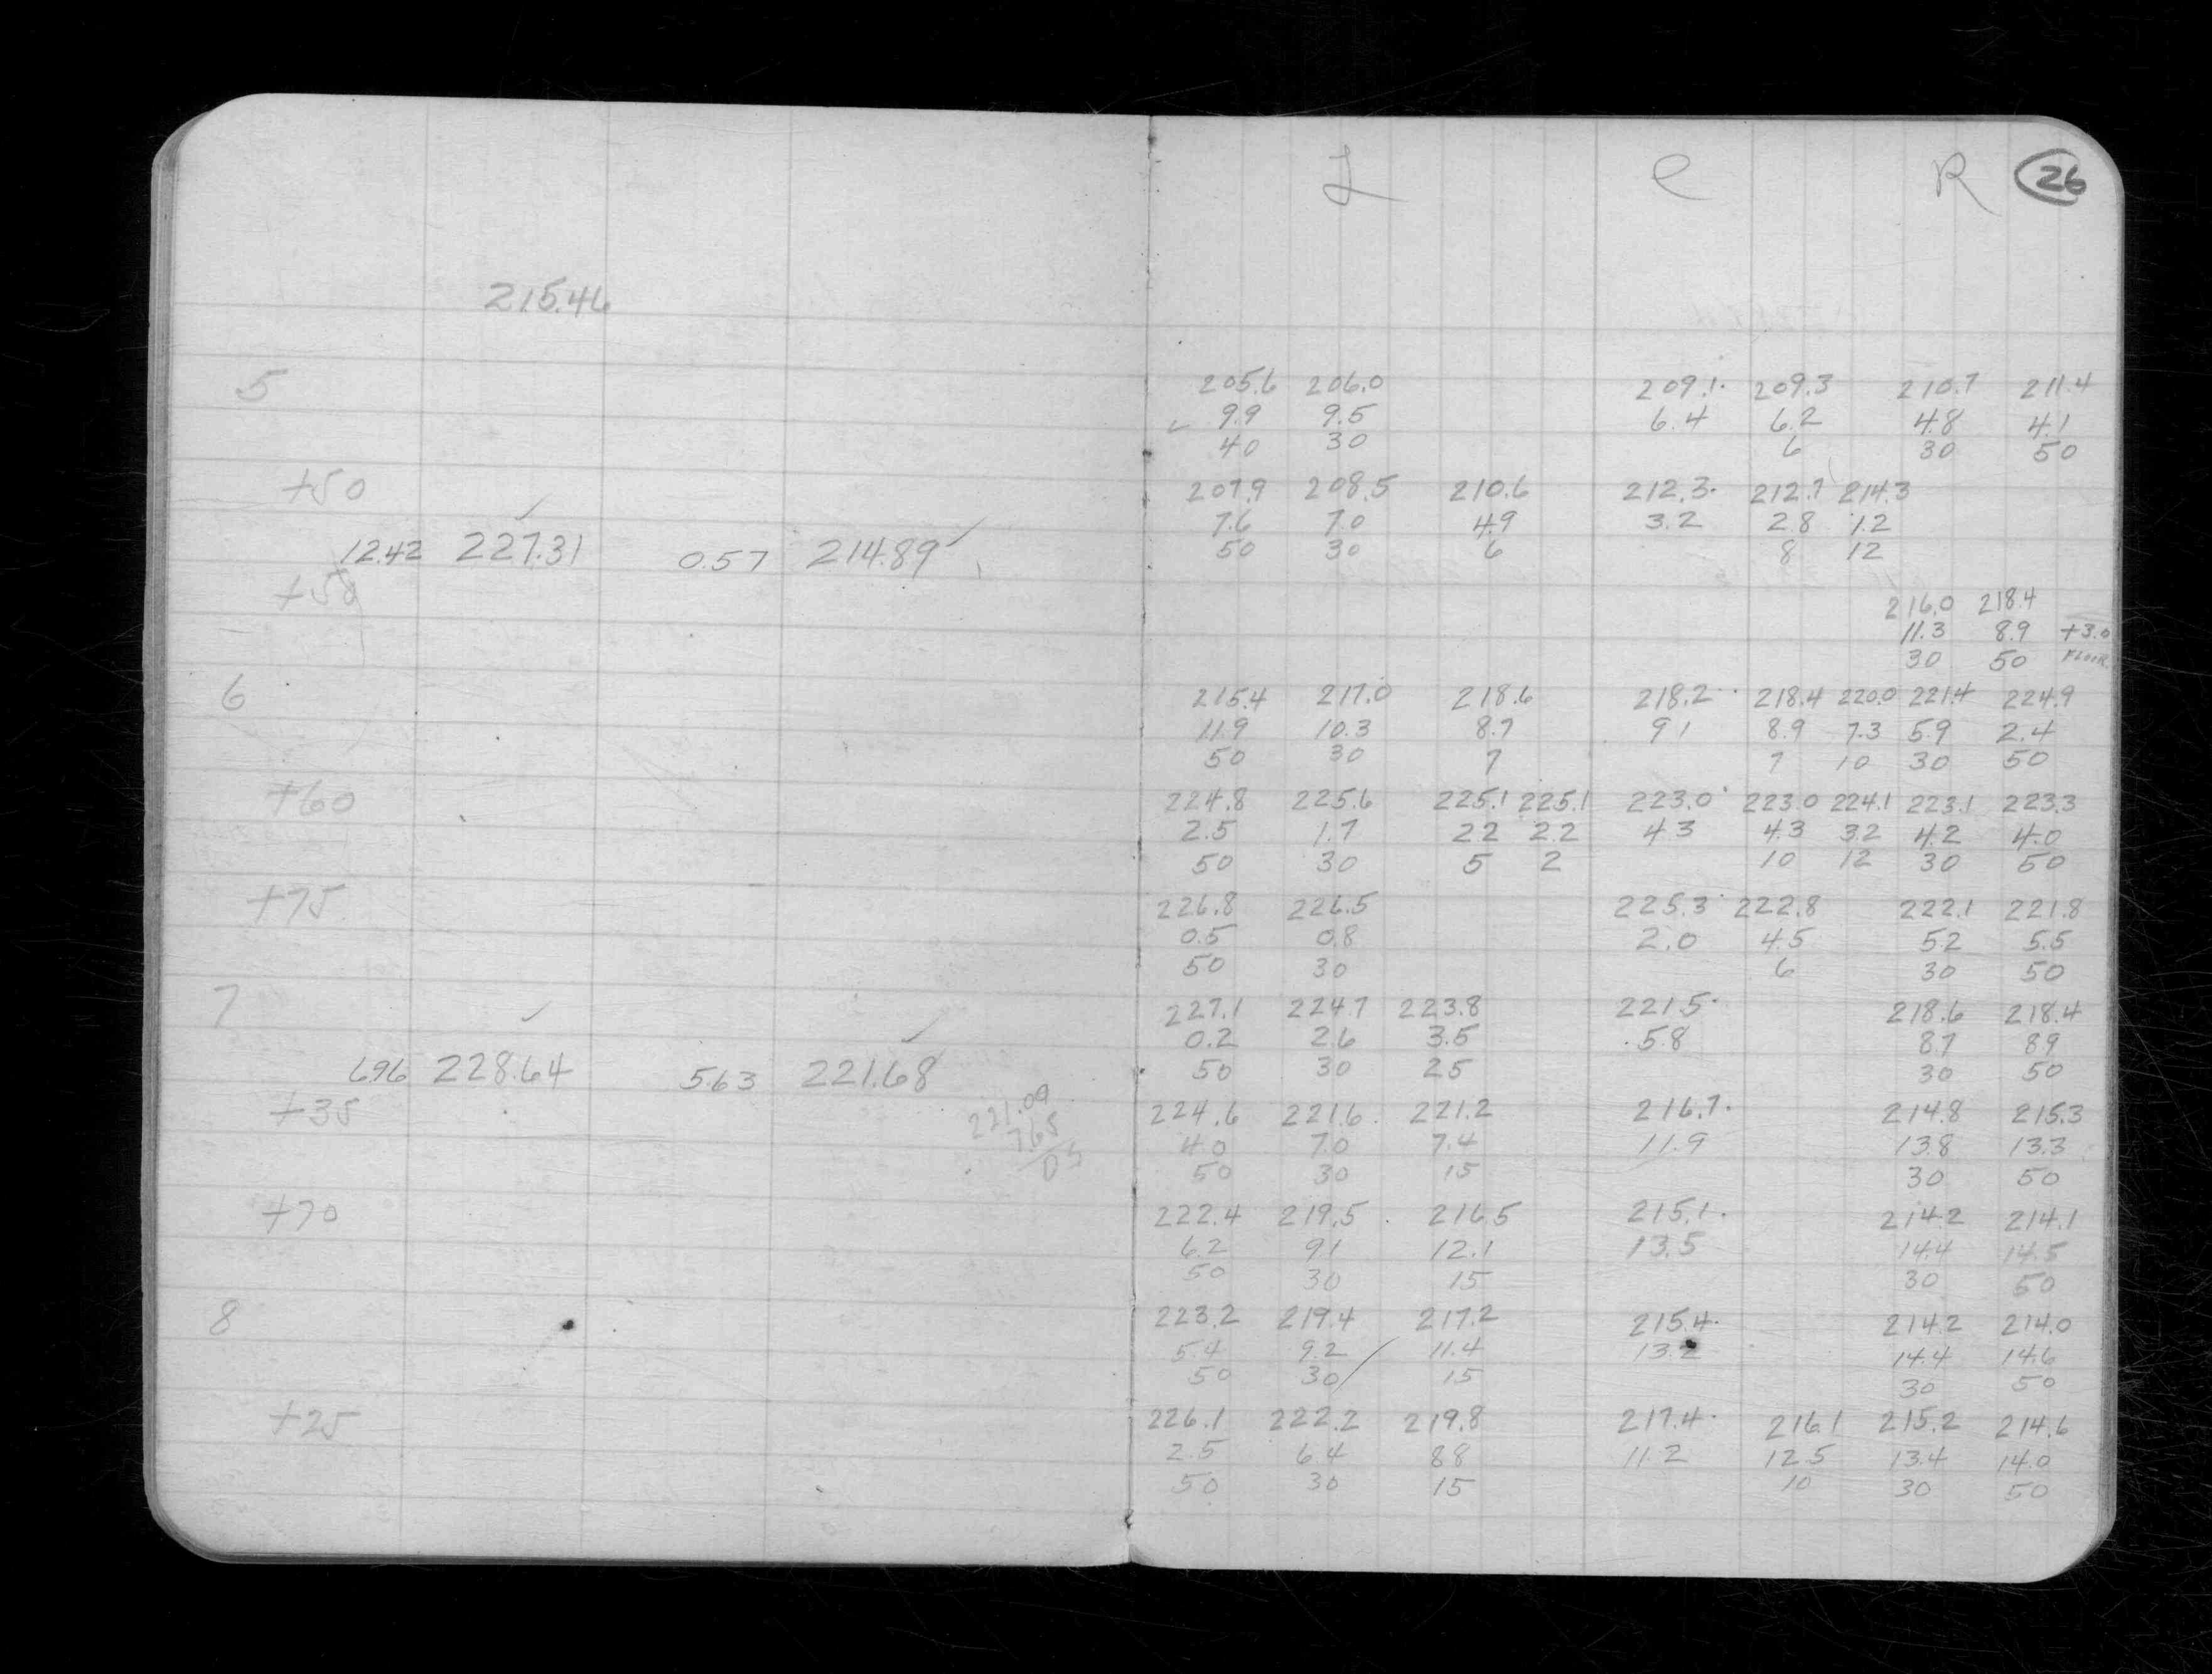 L C R 26
215.46
5 205.6 206.0 209.1 209.3 210.7 211.4
9.9 9.5 6.4 6.2 4.8 4.1
40 30 6 30 50
+50 207.9 208.5 210.6 212.3 212.7 214.3
7.6 7.0 4.9 3.2 2.8 1.2
12.42 227.31 0.57 214.89 50 30 6 8 12
+50 216.0 218.4
11.3 8.9 +3.0
30 50 FLOOR
6 215.4 217.0 218.6 218.2 218.4 220.0 221.4 224.9
11.9 10.3 8.7 9.1 8.9 7.3 5.9 2.4
50 30 7 7 10 30 50
+60 224.8 225.6 225.1 225.1 223.0 223.0 224.1 223.1 223.3
2.5 1.7 2.2 2.2 4.3 4.3 3.2 4.2 4.0
50 30 5 2 10 12 30 50
+75 226.8 226.5 225.3 222.8 222.1 221.8
0.5 0.8 2.0 4.5 5.2 5.5
50 30 6 30 50
7 227.1 224.7 223.8 221.5 218.6 218.4
0.2 2.6 3.5 5.8 8.7 8.9
6.96 228.64 5.63 221.68 50 30 25 30 50
221.09
7.65
05
+35 224.6 221.6 221.2 216.7 214.8 215.3
4.0 7.0 7.4 11.9 13.8 13.3
50 30 15 30 50
+70 222.4 219.5 216.5 215.1 214.2 214.1
6.2 9.1 12.1 13.5 14.4 14.5
50 30 15 30 50
8 223.2 219.4 217.2 215.4 214.2 214.0
5.4 9.2 11.4 13.2 14.4 14.6
50 30 15 30 50
+25 226.1 222.2 219.8 217.4 216.1 215.2 214.6
2.5 6.4 8.8 11.2 12.5 13.4 14.0
50 30 15 10 30 50